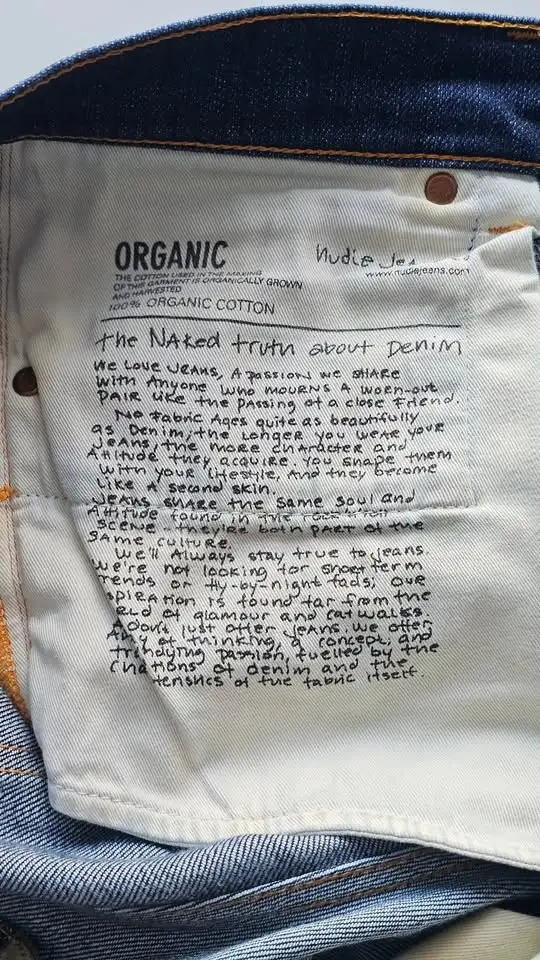 ORGANIC
THE COTTON USED IN THE MAKING
OF THIS GARMENT IS ORGANICALLY GROWN
AND HARVESTED
100% ORGANIC COTTON
Nudie Jea
www.nudiejeans.com
the NAKed truth about Denim
We Love Jeans, A passion we share
with Anyone who mourns A worn-out
pair like the passing of a close friend.
No Fabric Ages quite as beautifully
as Denim, the longer you wear your
Jeans, the more character and
Attitude they acquire. You shape them
with your lifestyle, And they become
like A second skin.
Jeans share the same soul and
Attitude found in the rock'n'roll
scene - they're both part of the
same culture.
We'll Always stay true to jeans.
We're not looking for short term
rends or fly-by-night fads; our
spiration is found far from the
rld of glamour and catwalks.
don't just offer jeans. we offer
of thinking, a concept, and
passion, fuelled by the
of denim and the
teristics of the fabric itself.